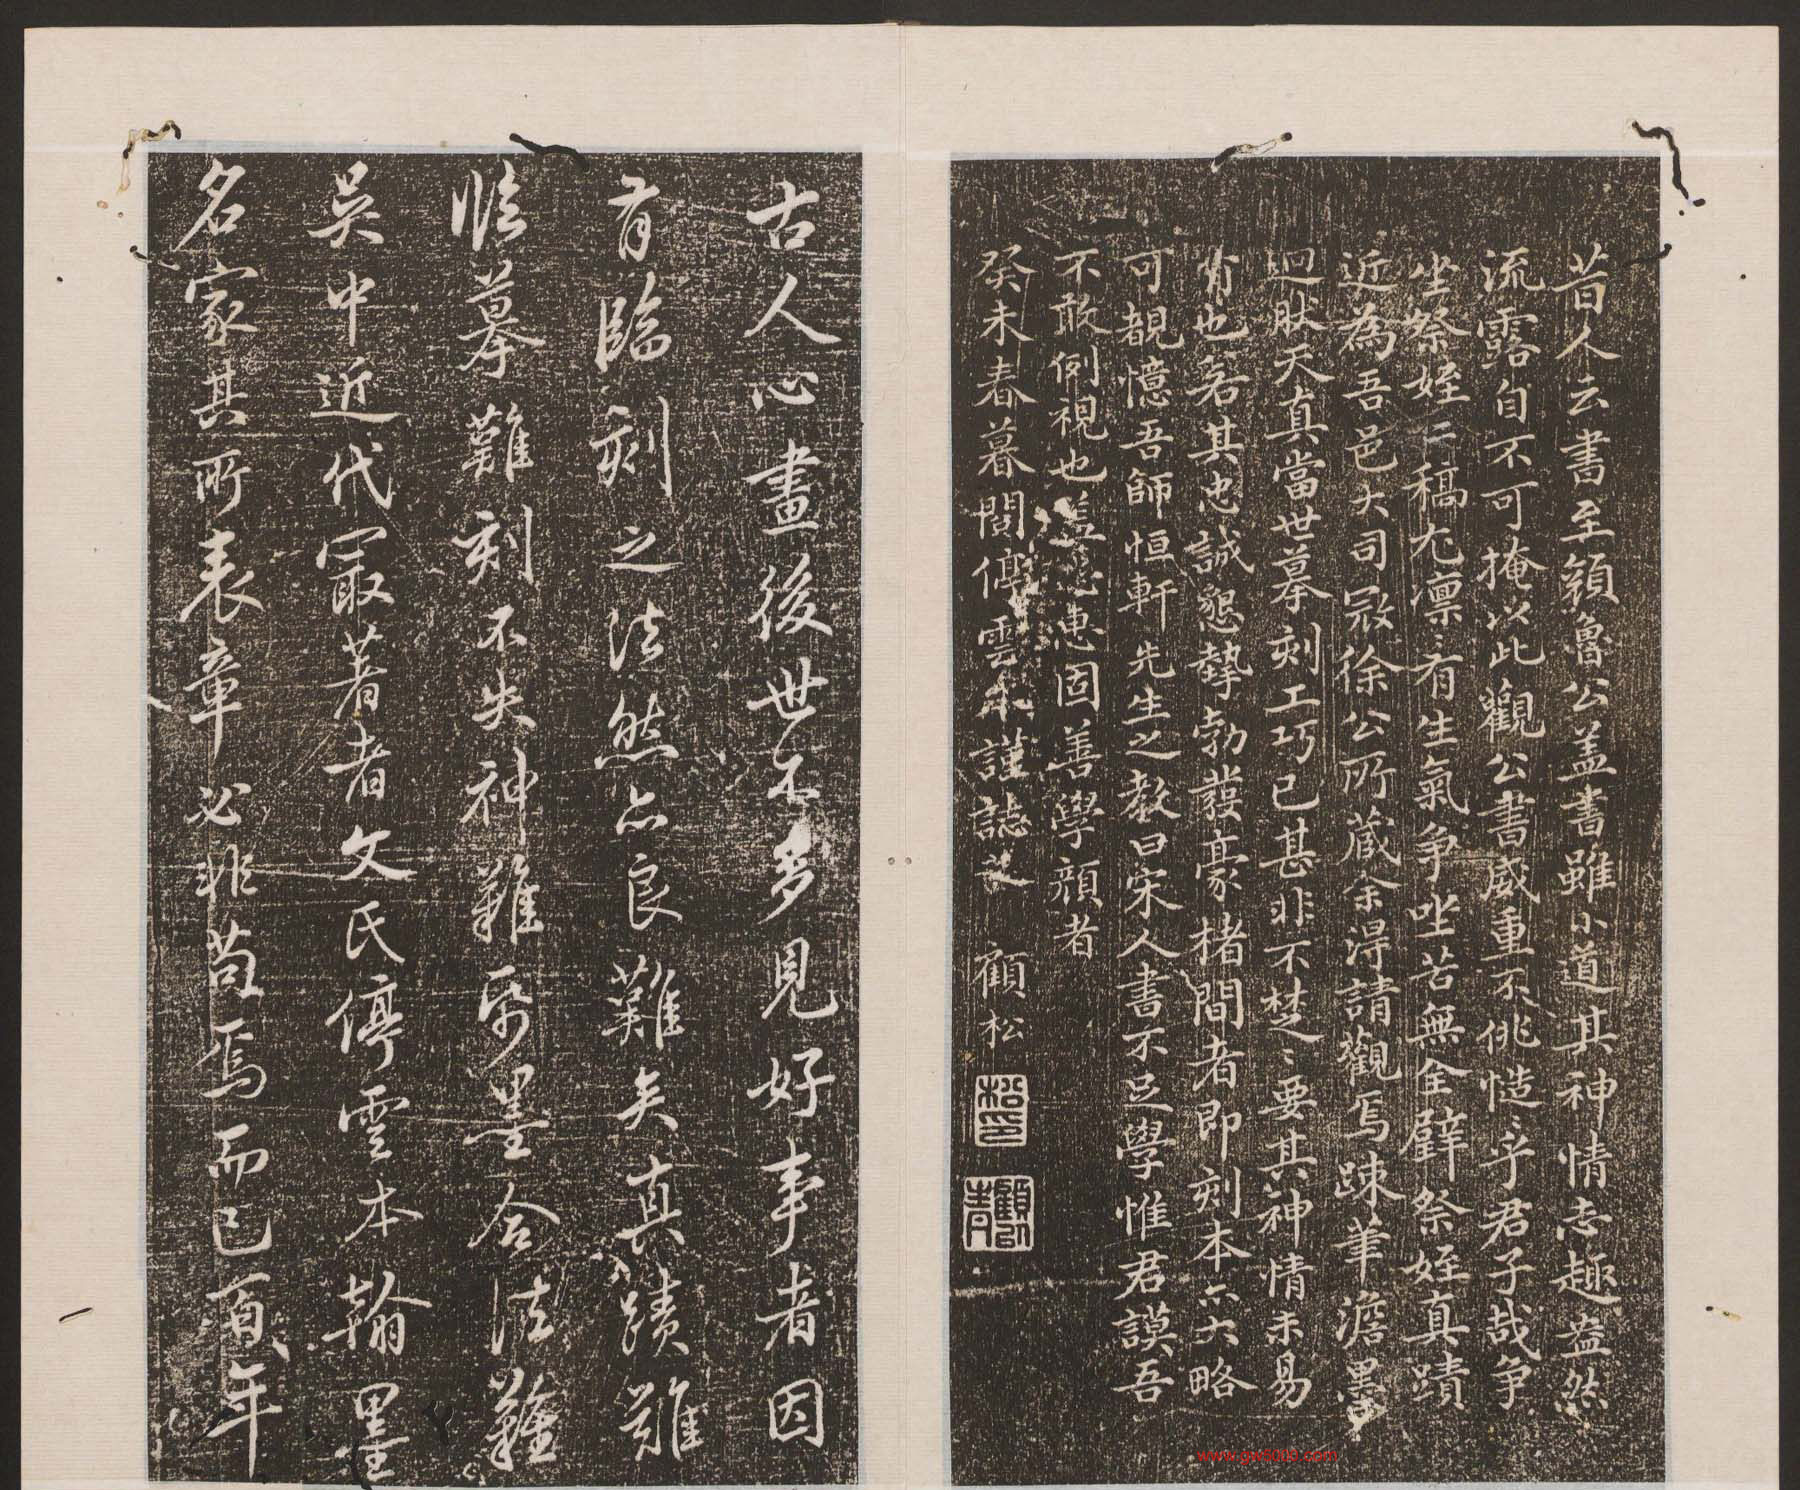 昔人云書至顏魯公盖書雖小道其神情志趣盎然
流露自不可掩以此觀公書威重不佻慥〻乎君子哉争
坐祭姪二稿尤凛〻有生氣争坐苦無全璧祭姪真蹟
近為吾邑大司冦徐公所藏余得請觀焉踈華澹墨
迥肰天真當世摹刻工巧已甚非不楚〻要其神情未易
肖也若其忠誠懇摯勃蕟豪楮間者即刻本亦大略
可覩憶吾師恒軒先生之教曰宋人書不足學惟君謨吾
不敢例視也盖忠惠固善學顔者
癸未春暮閱停雲本謹誌之 顧松
松印
顧
古人心畫後世不多見好事者因
有臨刻之法然亦良難矣真蹟難
臨摹難刻不失神難紙墨合法難
吳中近代冣著者文氏停雲本翰墨
名家其所表章必非苟焉而已百年
www.gw5000.com